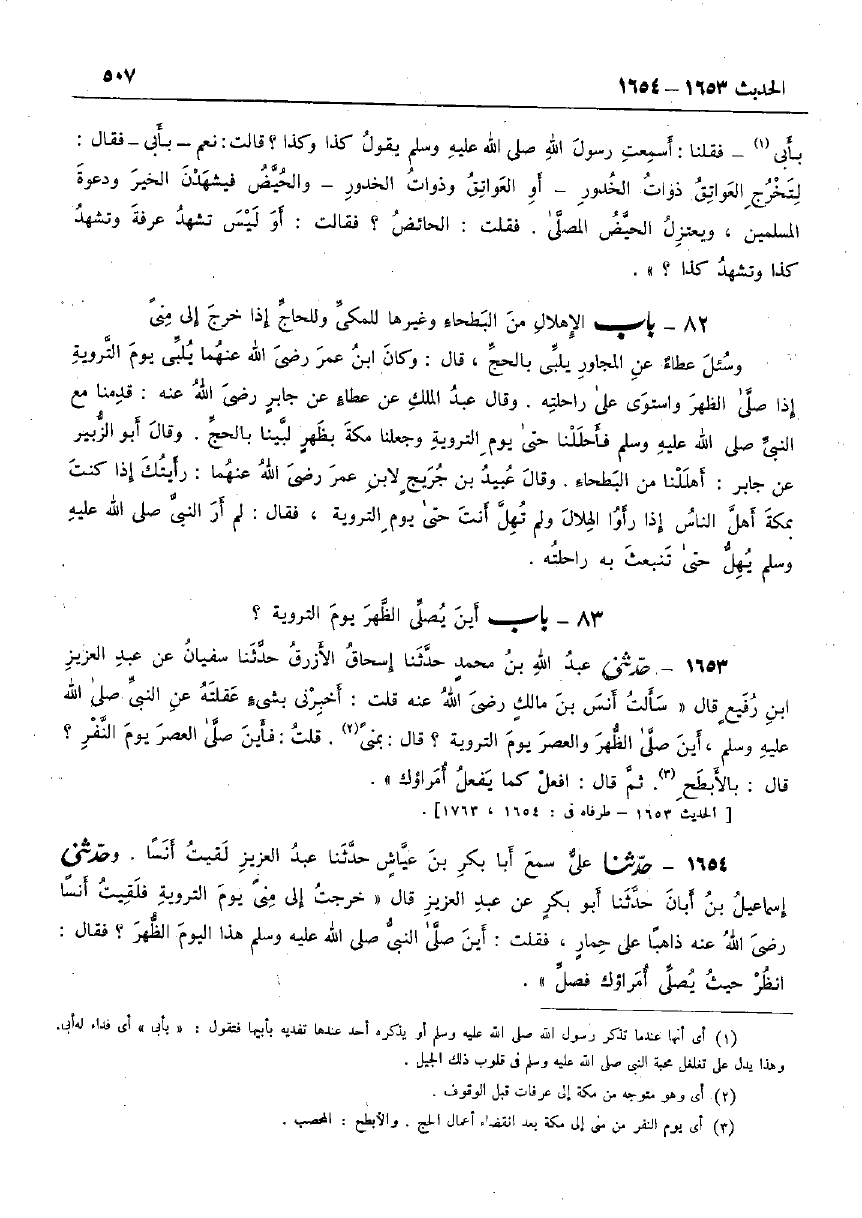 الحديث ١٦٥٣ – ١٦٥٤
٥٠٧
بأَبى (١) – فقلنا : أَسمِعتِ رسولَ اللهِ صلى الله عليهِ وسلم يقولُ كذا وكذا ؟ قالت : نعم – بأَبى – فقال :
لِتَخْرُجِ العَواتِقُ ذواتُ الخُدور – أَوِ العَواتِقُ وذواتُ الخدورِ – والحُيَّضُ فيشهَدْنَ الخيرَ ودعوةَ
المسلمين ، ويعتزِلُ الحيَّضُ المصلَّىٰ . فقلت : الحائضُ ؟ فقالت : أَوَ لَيْسَ تشهدُ عرفةَ وتشهدُ
كذا وتشهدُ كذا ؟ » .
٨٢ – باب الإهلالِ منَ البَطحاءِ وغيرها للمكىِّ وللحاجِّ إذا خرجَ إلى مِنىً
وسُئلَ عطاءٌ عنِ المجاورِ يلبِّى بالحجِّ ، قال : وكانَ ابنُ عمرَ رضىَ الله عنهُما يُلبِّى يومَ التَّرويةِ
إذا صلَّىٰ الظهرَ واستوَى علىٰ راحلتِه . وقال عبدُ الملكِ عن عطاءٍ عن جابرٍ رضىَ اللهُ عنه : قدِمنا مع
النبىِّ صلى الله عليهِ وسلم فأَحلَلْنا حتىٰ يومِ الترويةِ وجعلنا مكةَ بظَهرٍ لبَّينا بالحجِّ . وقالَ أبو الزُّبير
عن جابر : أهلَلْنا من البَطحاءِ . وقالَ عُبيدُ بن جُرَيجٍ لابنِ عمرَ رضىَ اللهُ عنهُما : رأيتُكَ إذا كنتَ
بمكةَ أهلَّ الناسُ إذا رأَوُا الهِلالَ ولم تُهِلَّ أنتَ حتىٰ يومِ التروية ، فقال : لم أرَ النبىَّ صلى الله عليهِ
وسلم يُهِلُّ حتىٰ تَنبعثَ به راحلتُه .
٨٣ – باب أينَ يُصلِّى الظَّهرَ يومَ التروية ؟
١٦٥٣ – حدّثنى عبدُ اللهِ بنُ محمدٍ حدَّثَنا إسحاقُ الأزرقُ حدَّثَنا سفيانُ عن عبدِ العزيزِ
ابنِ رُفَيعٍ قال « سَألتُ أنَسَ بنَ مالكٍ رضىَ اللهُ عنه قلت : أخبِرْنى بشىءٍ عَقَلتَهُ عنِ النبىِّ صلىٰ الله
عليهِ وسلم ، أينَ صلَّىٰ الظُّهرَ والعصرَ يومَ التروية ؟ قال : بمنىً (٢) . قلتُ : فأينَ صلَّىٰ العصرَ يومَ النَّفْرِ ؟
قال : بالأَبطَحِ (٣) . ثمَّ قال : افعلْ كما يَفعلُ أُمَراؤك » .
[ الحديث ١٦٥٣ – طرفاه فى : ١٦٥٤ ، ١٧٦٣ ] .
١٦٥٤ – حدّثنا علىٌّ سمعَ أبا بكرِ بنَ عيَّاشٍ حدَّثَنا عبدُ العزيزِ لَقيتُ أنَسًا . وحدّثنى
إسماعيلُ بنُ أبانَ حدَّثَنا أبو بكرٍ عن عبدِ العزيزِ قال « خرجتُ إلى مِنىً يومَ الترويةِ فلَقِيتُ أنسًا
رضىَ اللهُ عنه ذاهبًا على حِمارٍ ، فقلت : أينَ صلَّىٰ النبىُّ صلى الله عليه وسلم هذا اليومَ الظُّهرَ ؟ فقال :
انظُرْ حيثُ يُصلِّى أُمَراؤك فصلِّ » .
(١) أى أنها عندما تذكر رسول الله صلى الله عليه وسلم أو يذكره أحد عندها تفديه بأبيها فتقول : « بأبى » أى فداء له أبى.
وهذا يدل على تغلغل محبة النبى صلى الله عليه وسلم فى قلوب ذلك الجيل .
(٢) أى وهو متوجه من مكة إلى عرفات قبل الوقوف .
(٣) أى يوم النفر من منى إلى مكة بعد انقضاء أعمال الحج . والأبطح : المحصب .